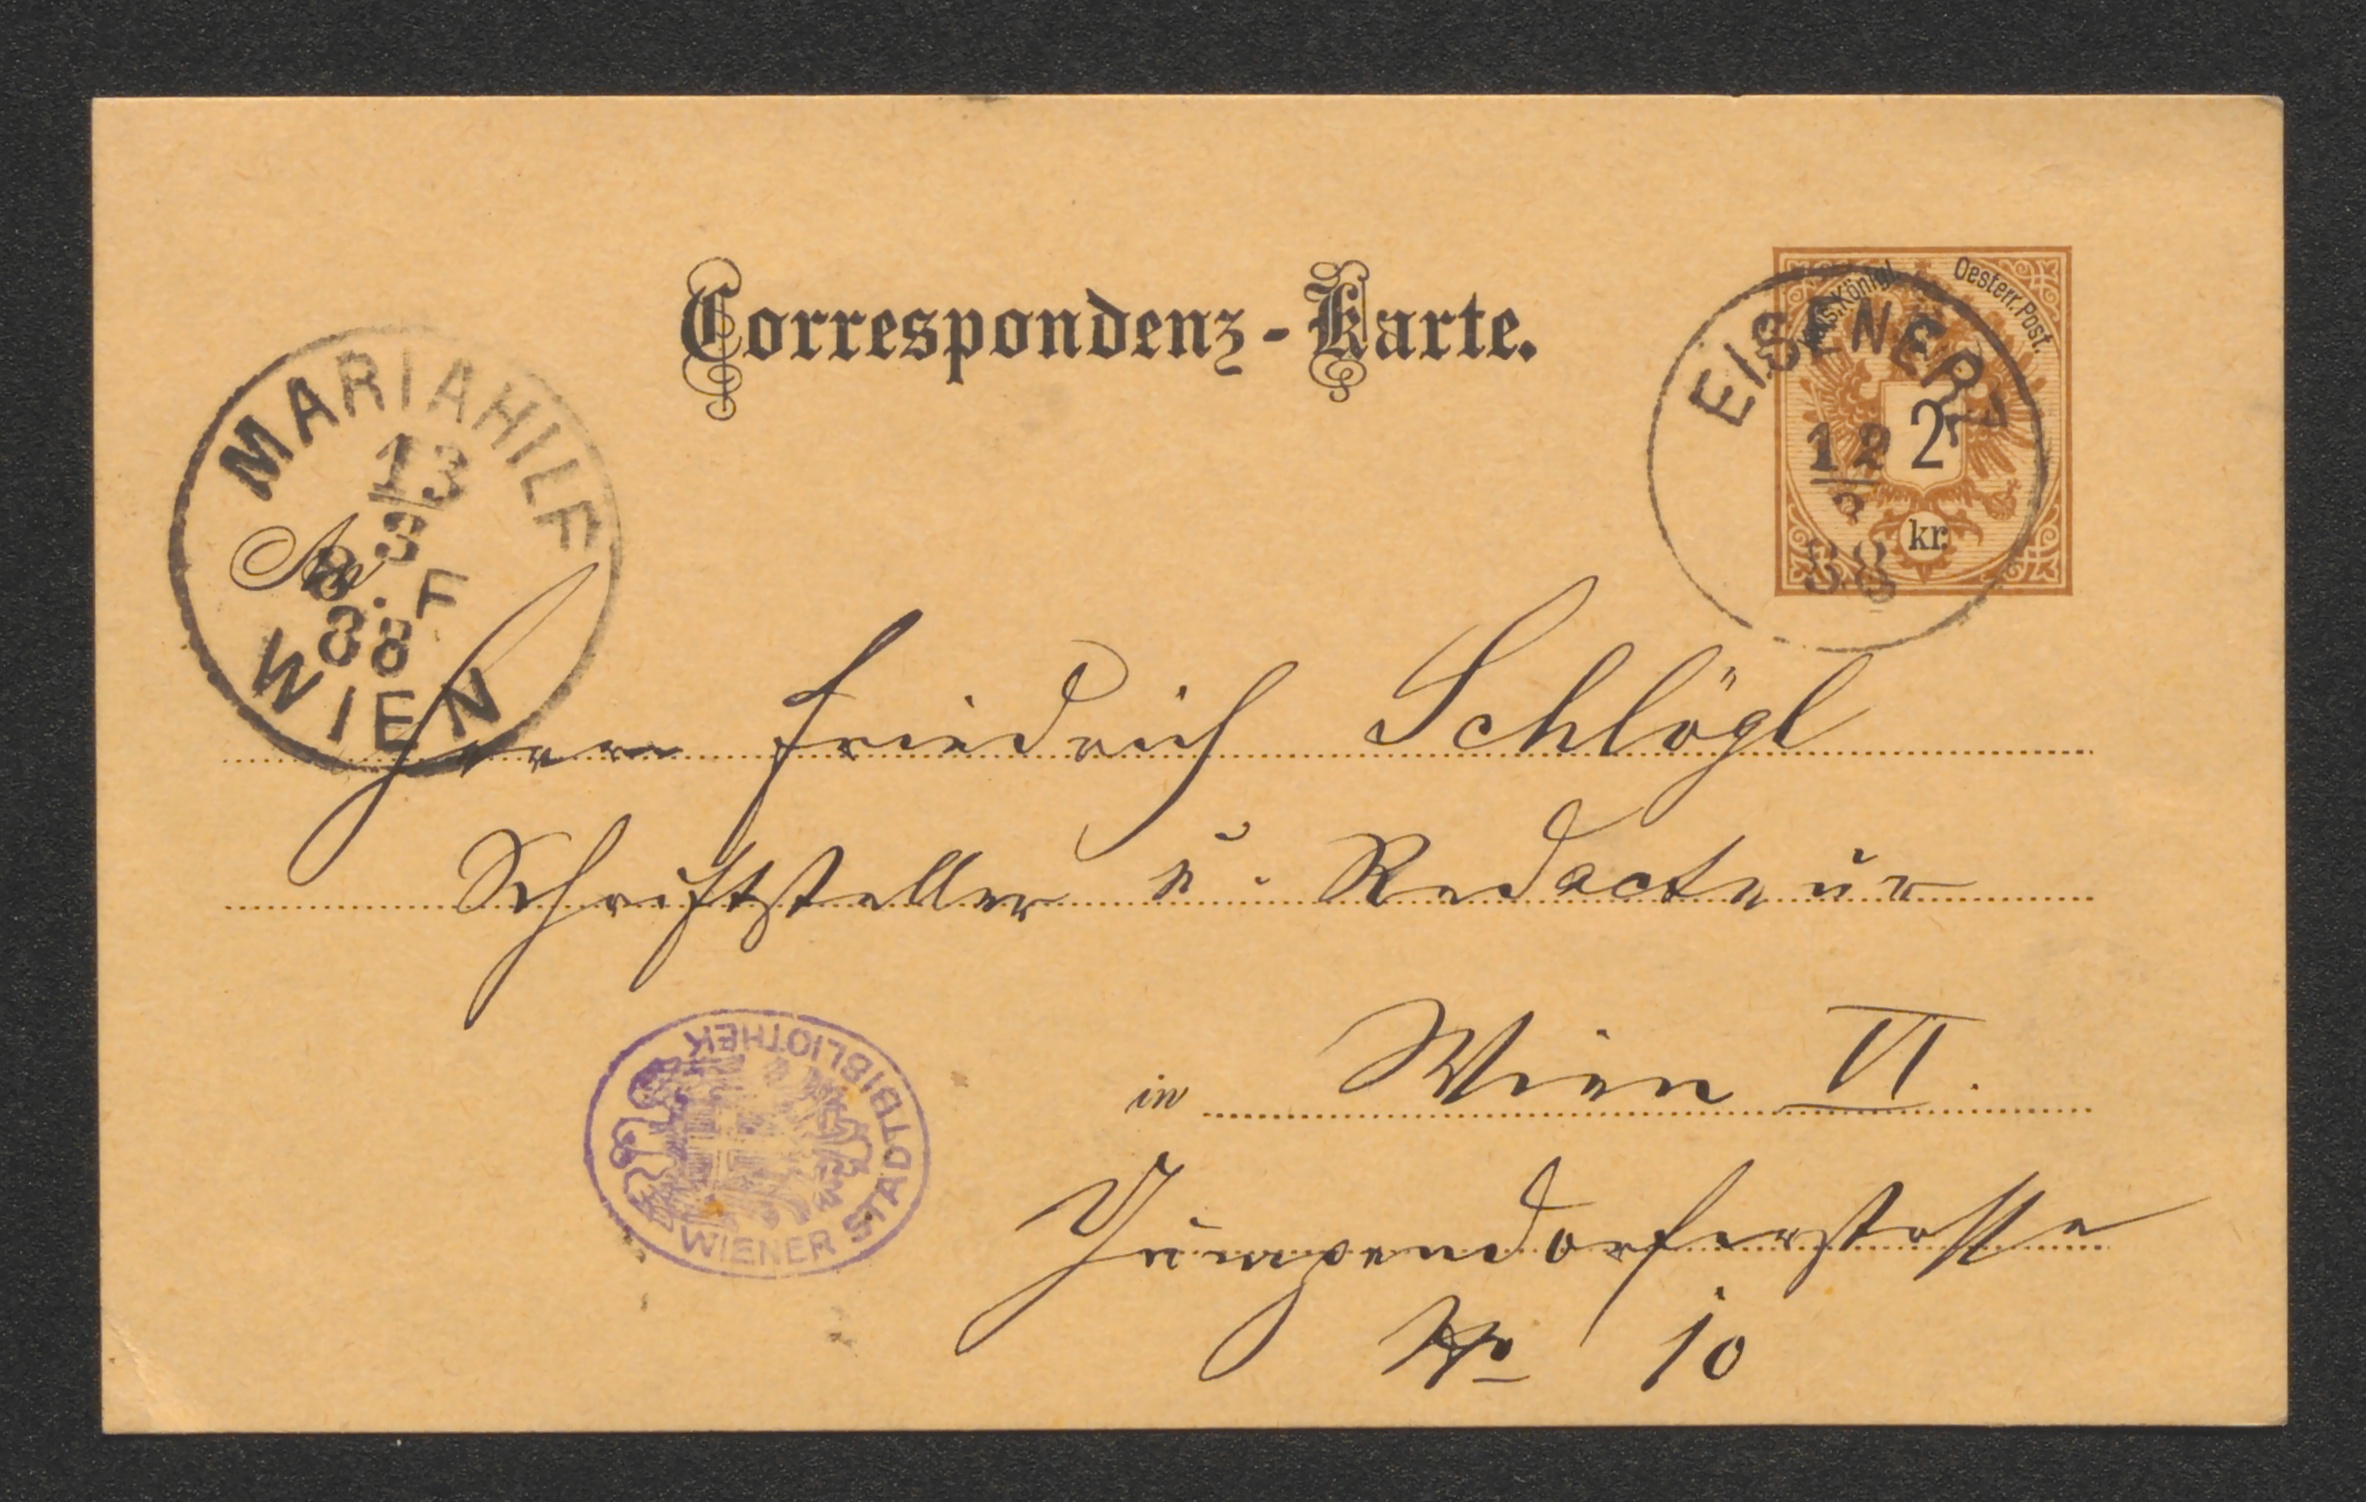 Correspondenz-Karte.
Kais. Königl. Oesterr. Post.
2
kr.
EISENERZ
12
88
MARIAHILF
13
3
8. F
88
WIEN
An
Herrn Friedrich Schlögl
Schriftsteller u. Redacteur
in Wien VI.
Gumpendorferstrasse
No 10
WIENER STADTBIBLIOTHEK